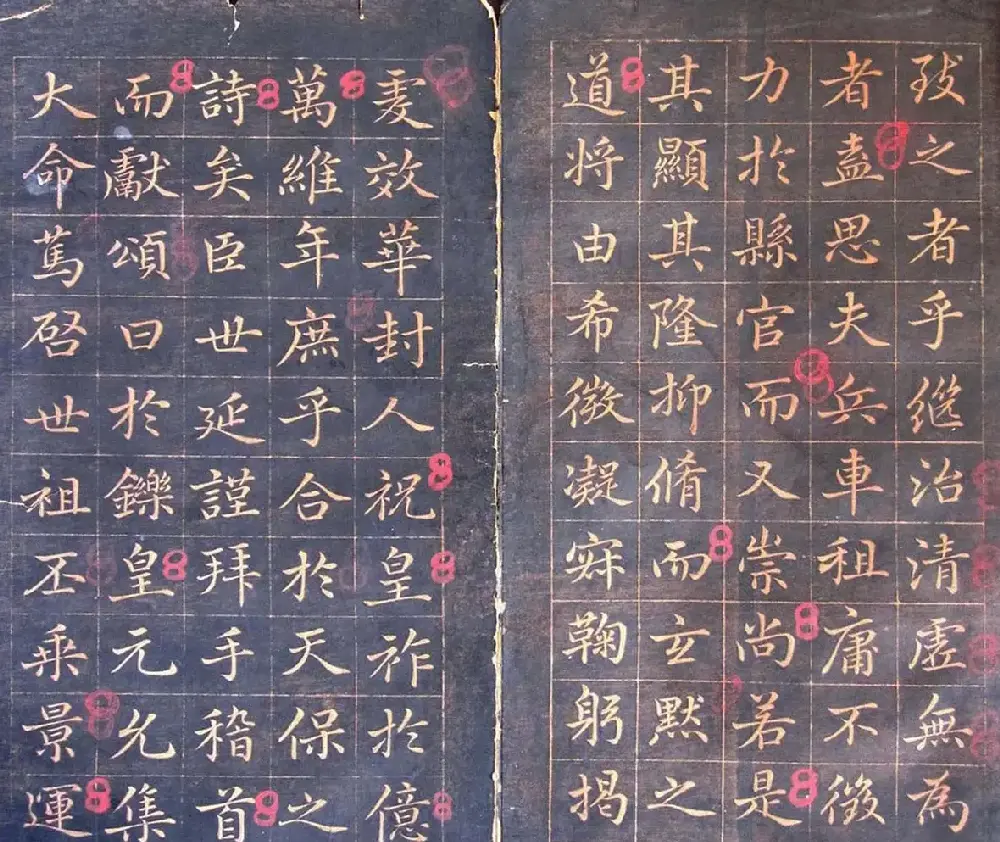 致之者乎继治清虚無為
者盖思夫兵車租庸不徵
力於縣官而又崇尚若是
其顯其隆抑脩而玄默之
道將由希微凝寂鞠躬揭
虔效華封人祝皇祚於億
萬維年庶乎合於天保之
詩矣臣世延謹拜手稽首
而獻頌曰於鑠皇元允集
大命篤啓世祖丕乗景運